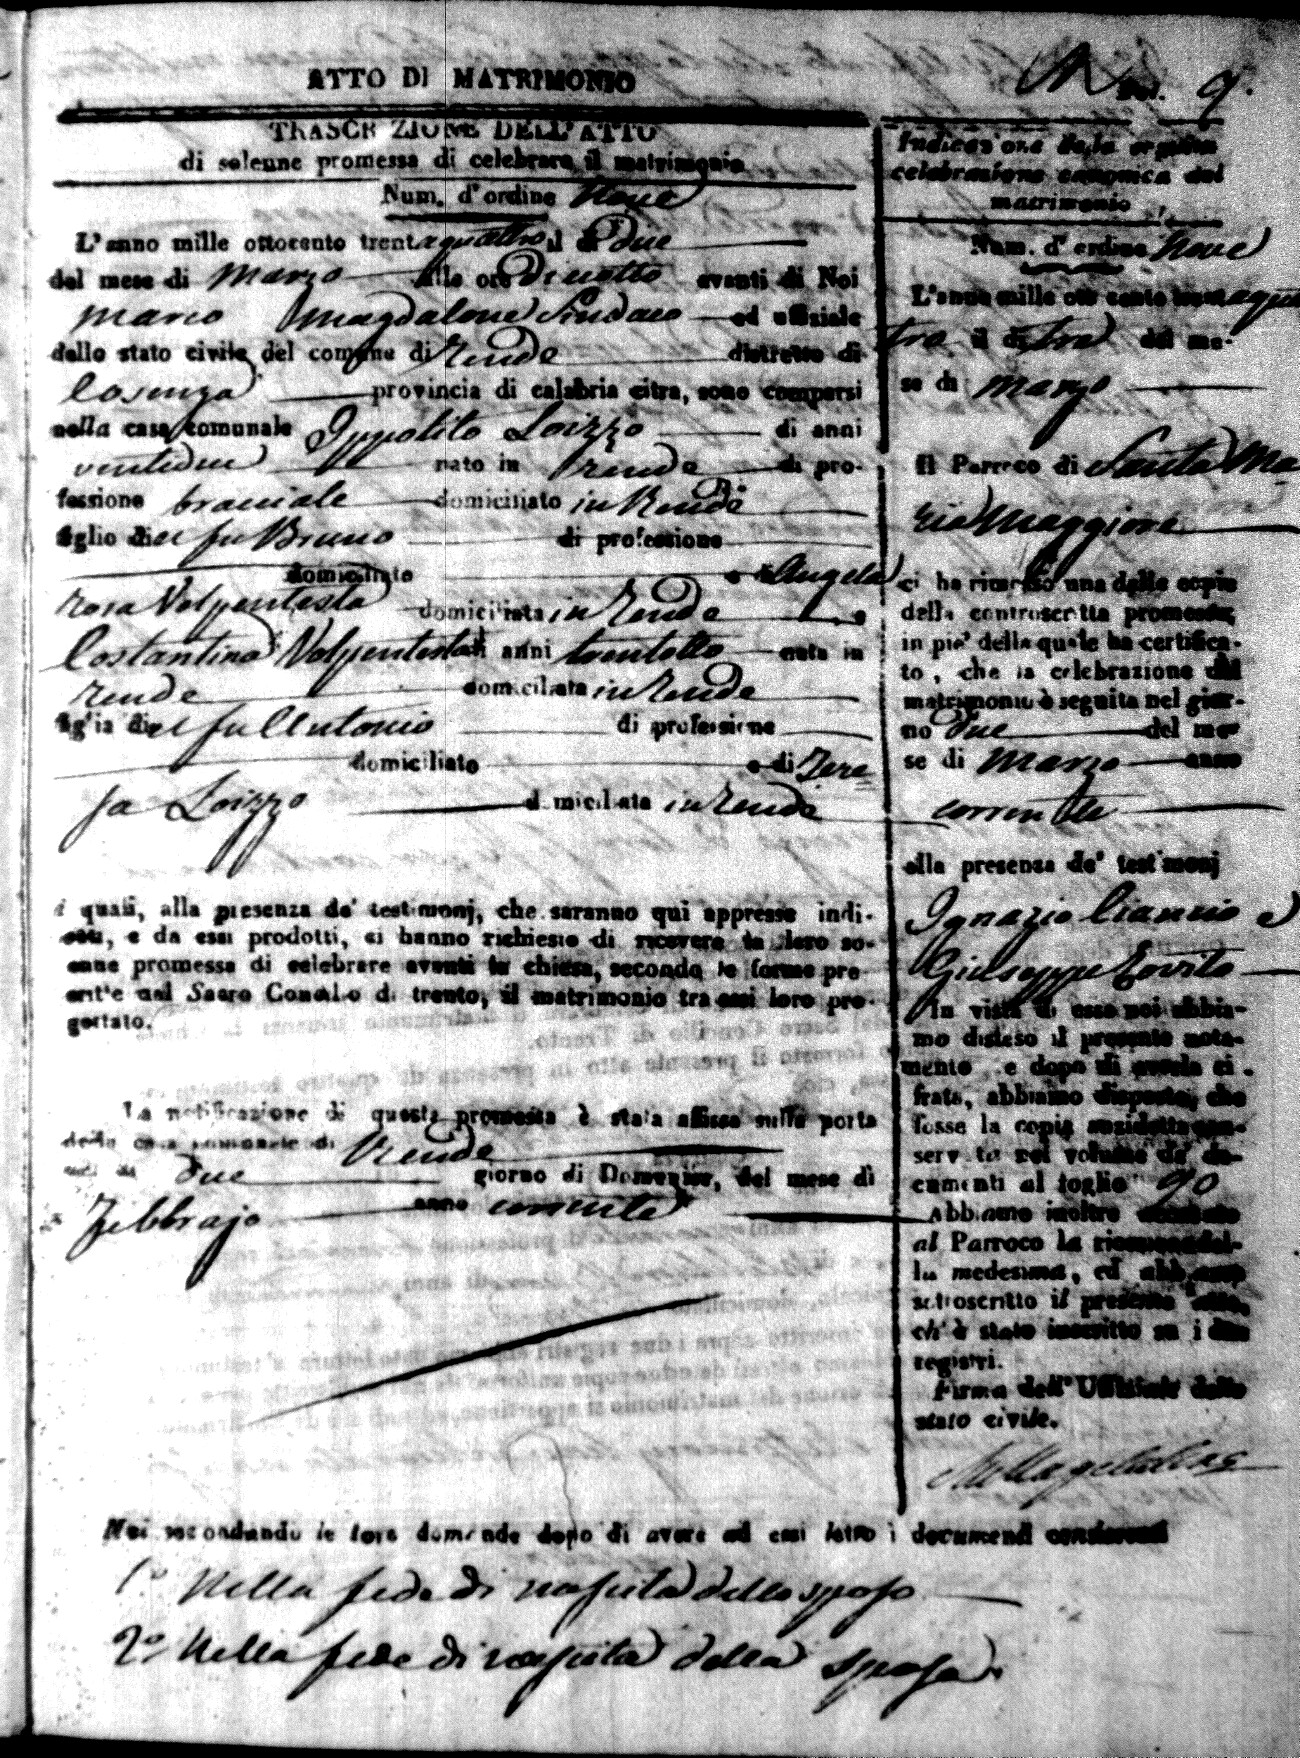 ATTO DI MATRIMONIO
9.
TRASCRIZIONE DELL'ATTO
di solenne promessa di celebrare il matrimonio
Num. d'ordine Nove
L'anno mille ottocento trentaquattro il di due
del mese di Marzo alle ore diciotto avanti di Noi
Marco Magdalone Sindaco ed uffiziale
dello stato civile del comune di Rende distretto di
Cosenza provincia di calabria citra, sono comparsi
nella casa comunale Ippolito Loizzo di anni
ventidue nato in Rende di pro-
fessione bracciale domiciliato in Rende
figlio di el fu Bruno di professione
domiciliato e di Angela
rosa Volpentesta domiciliata in Rende e
Costantina Volpentesta di anni trentotto nata in
Rende domiciliata in Rende
figlia di el fu Antonio di professione
domiciliato e di Tere
sa Loizzo domiciliata in Rende
i quali, alla presenza de' testimonj, che saranno qui appresso indi-
cati, e da essi prodotti, ci hanno richiesto di ricevere la loro so-
enne promessa di celebrare avanti la chiesa, secondo le forme pre
scritte dal Sacro Concilio di trento, il matrimonio tra essi loro pro-
gettato.
La notificazione di questa promessa è stata affissa sulla porta
della casa comunale di Rende
nel dì due giorno di Domenica, del mese dì
Febbrajo anno corrente
Indicazione della seguita
celebrazione canonica del
matrimonio
Num. d'ordine Nove
L'anno mille otto cento trentaquat
tro il di tre del me-
se di Marzo
Il Parroco di Santa Ma
ria Maggiore
ci ha rimesso una delle copie
della controscritta promessa,
in pie' della quale ha certifica-
to, che la celebrazione del
matrimonio è seguita nel gior-
no due del me
se di Marzo anno
corrente
alla presenza de' testimonj
Ignazio Ciancio e
Giuseppe Lovito
In vista di essa noi abbia-
mo disteso il presente nota-
mento, e dopo di averla ci-
frata, abbiamo disposto, che
fosse la copia anzidetta con-
servata nel volume de' do-
cumenti al foglio 90
Abbiamo inoltre accusato
al Parroco la ricevuta del-
la medesima, ed abbiamo
sottoscritto il presente atto,
ch'è stato inscritto su i due
registri.
Firma dell'Uffiziale dello
stato civile.
Noi secondando le loro domande dopo di avere ad essi letto i documenti
1.o Nella fede di nascita dello sposo
2.o Nella fede di nascita della sposa.